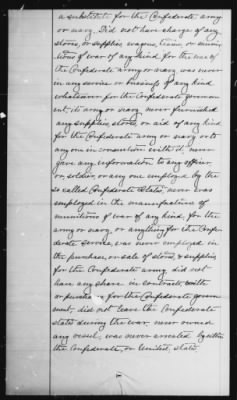 a substitute for the Confederate army
or navy. Did not have charge of any
stores, or supplies wagons, teams or muni-
tions of war of any kind for the use of
the Confederate army or navy was never
in any service or business of any kind
whatever for the Confederate govern-
ment, its army or navy never furnished
any supplies, stores, or aid of any kind
for the Confederate army or navy or to
any one in connection with it. never
gave any information to any officer
or soldier or any one employed by the
so called Confederate States, never was
employed in the manufacture of
munitions of war of any kind, for the
army or navy, or anything for the Confe-
derate service, was never employed in
the purchase or sale of stores, & supplies
for the Confederate army did not
have any share in contracts with
or purchases for the Confederate govern-
ment, did not leave the Confederate
states during the war, never owned
any vessel, was never arrested by either
the Confederate, or United, States.